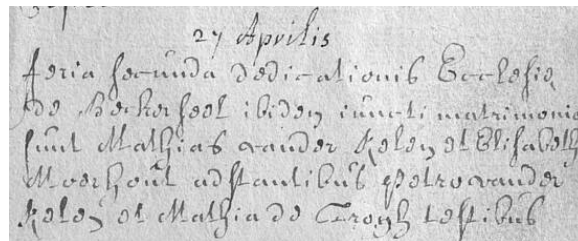 27 Aprilis
feria secunda dedicationis Ecclesie
de Beckerseel ibidem iuncti matrimonio
sunt Mathias vander Kelen et Elisabeth
Moerhout adstantibus petro vander
Kelen et Mathia de Trogh testibus